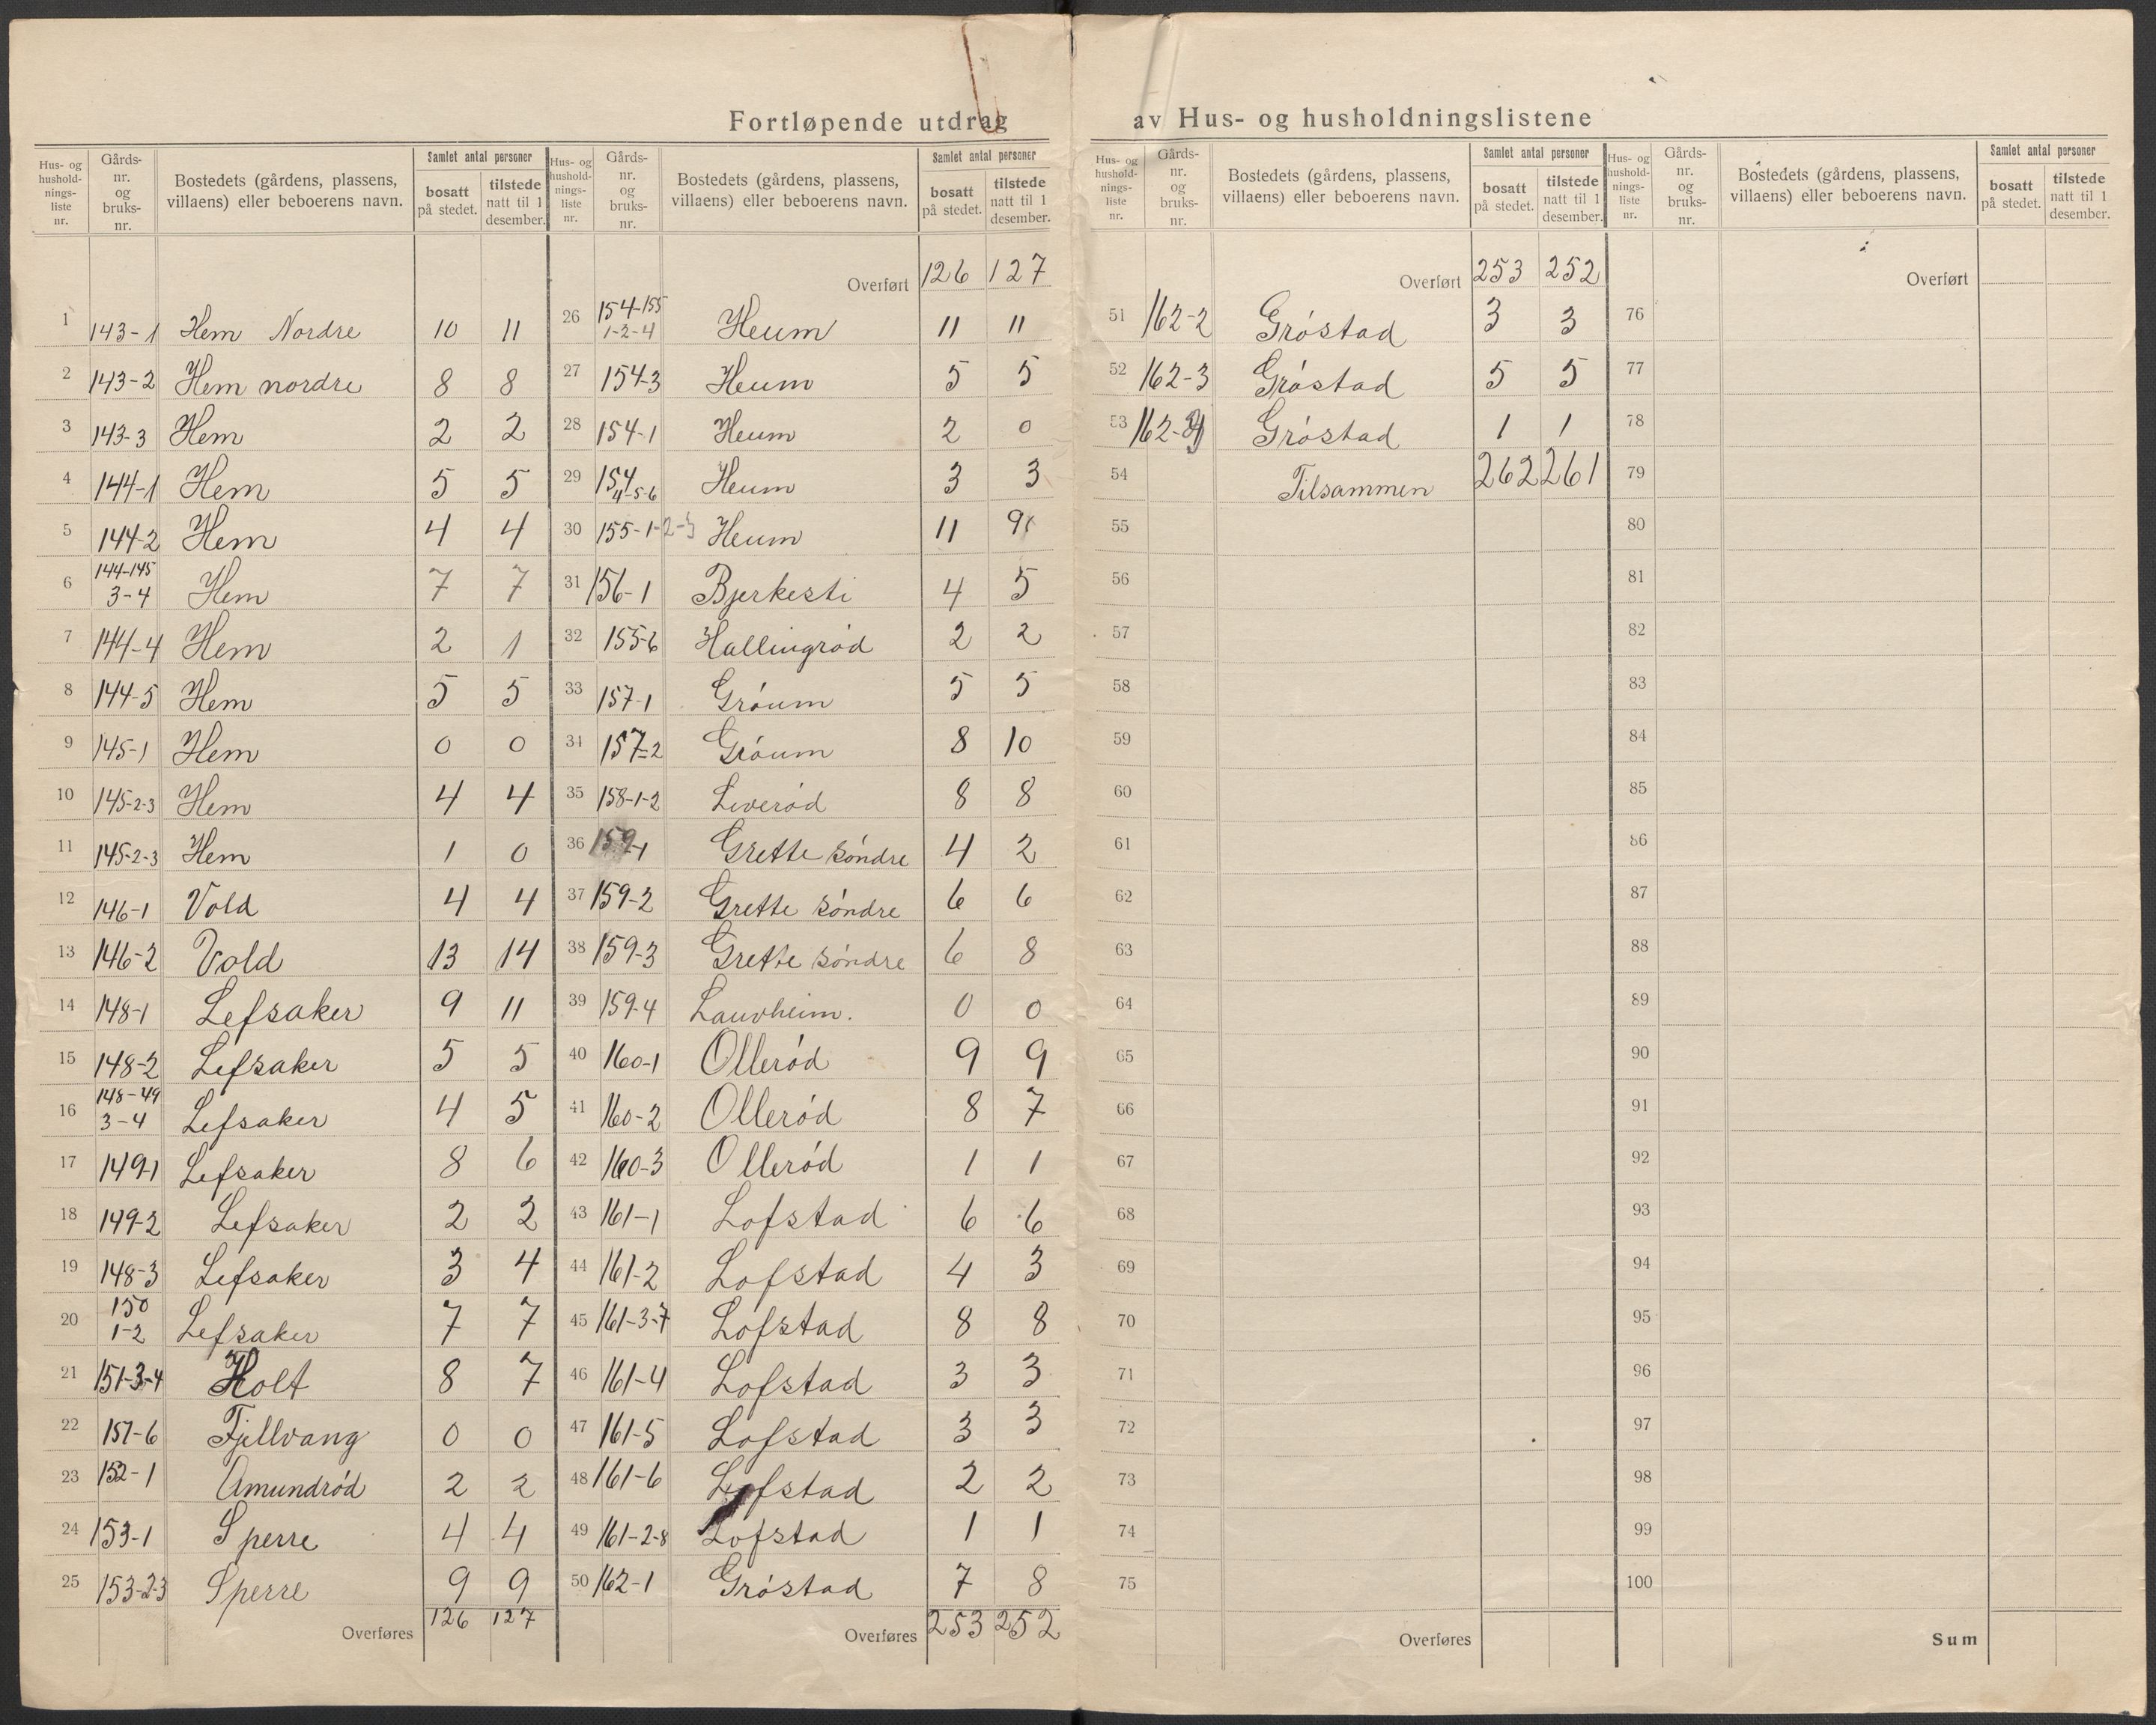 Fortløpende utdrag av Hus- og husholdningslistene
Hus- og hushold-nings-liste nr. | Gårds-nr. og bruks-nr. | Bostedets (gårdens, plassens, villaens) eller beboerens navn. | Samlet antal personer | bosatt på stedet. | tilstede natt til 1 desember.
1 143-1 Hem Nordre 10 11
2 143-2 Hem nordre 8 8
3 143-3 Hem 2 2
4 144-1 Hem 5 5
5 144-2 Hem 4 4
6 144-145 3-4 Hem 7 7
7 144-4 Hem 2 1
8 144-5 Hem 5 5
9 145-1 Hem 0 0
10 145-2-3 Hem 4 4
11 145-2-3 Hem 1 0
12 146-1 Vold 4 4
13 146-2 Vold 13 14
14 148-1 Lefsaker 9 11
15 148-2 Lefsaker 5 5
16 148-49 3-4 Lefsaker 4 5
17 149-1 Lefsaker 8 6
18 149-2 Lefsaker 2 2
19 148-3 Lefsaker 3 4
20 150 1-2 Lefsaker 7 7
21 151-3-4 Holt 8 7
22 151-6 Fjellvang 0 0
23 152-1 Amundrød 2 2
24 153-1 Sperre 4 4
25 153-2-3 Sperre 9 9
Overføres 126 127
Hus- og hushold-nings-liste nr. | Gårds-nr. og bruks-nr. | Bostedets (gårdens, plassens, villaens) eller beboerens navn. | Samlet antal personer | bosatt på stedet. | tilstede natt til 1 desember.
Overført 126 127
26 154-155 1-2-4 Heum 11 11
27 154-3 Heum 5 5
28 154-1 Heum 2 0
29 154 4-5-6 Heum 3 3
30 155-1-2-3 Heum 11 9
31 156-1 Bjerkesti 4 5
32 155-6 Hallingrød 2 2
33 157-1 Gróum 5 5
34 157-2 Gróum 8 10
35 158-1-2 Liverød 8 8
36 159-1 Grette søndre 4 2
37 159-2 Grette søndre 6 6
38 159-3 Grette søndre 6 8
39 159-4 Lauvheim. 0 0
40 160-1 Ollerød 9 9
41 160-2 Ollerød 8 7
42 160-3 Ollerød 1 1
43 161-1 Lofstad 6 6
44 161-2 Lofstad 4 3
45 161-3-7 Lofstad 8 8
46 161-4 Lofstad 3 3
47 161-5 Lofstad 3 3
48 161-6 Lofstad 2 2
49 161-2-8 Lofstad 1 1
50 162-1 Gróstad 7 8
Overføres 253 252
Hus- og hushold-nings-liste nr. | Gårds-nr. og bruks-nr. | Bostedets (gårdens, plassens, villaens) eller beboerens navn. | Samlet antal personer | bosatt på stedet. | tilstede natt til 1 desember.
Overført 253 252
51 162-2 Gróstad 3 3
52 162-3 Gróstad 5 5
53 162- Gróstad 1 1
54 Tilsammen 262 261
55
56
57
58
59
60
61
62
63
64
65
66
67
68
69
70
71
72
73
74
75
Overføres
Hus- og hushold-nings-liste nr. | Gårds-nr. og bruks-nr. | Bostedets (gårdens, plassens, villaens) eller beboerens navn. | Samlet antal personer | bosatt på stedet. | tilstede natt til 1 desember.
Overført
76
77
78
79
80
81
82
83
84
85
86
87
88
89
90
91
92
93
94
95
96
97
98
99
100
Sum